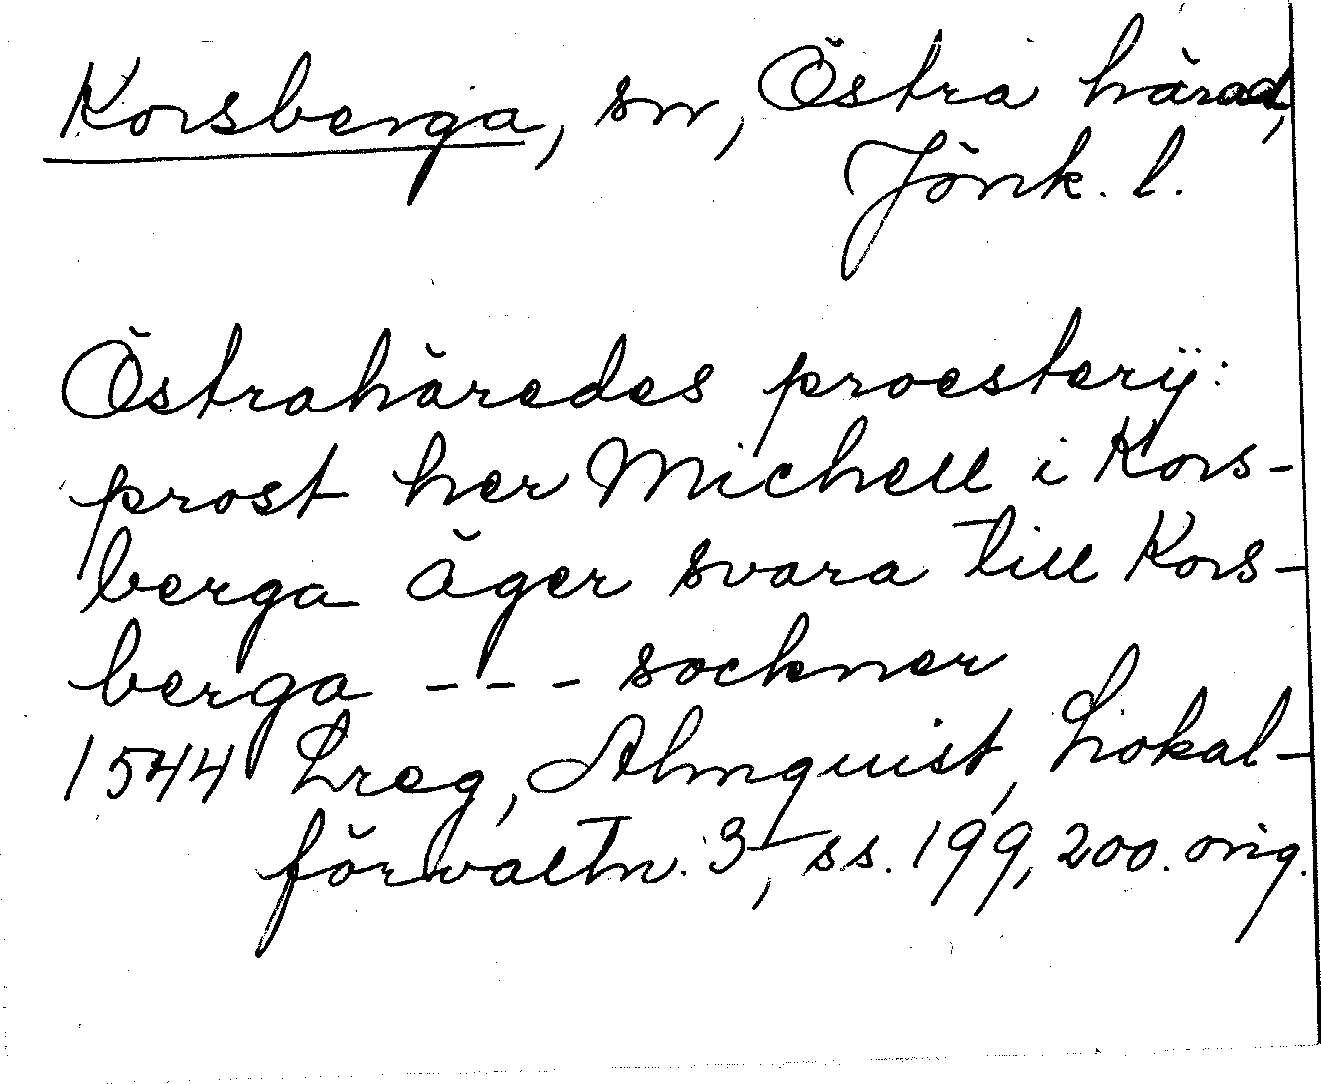 Korsberga, sn, Östra härad,
Jönk. l.
Östrahäredes proesterÿ:
prost her Michell i Kors-
berga äger svara till Kors-
berga --- sockner
1544 Lreg, Almquist, Lokal-
förvaltn. 3, ss. 199, 200. orig.